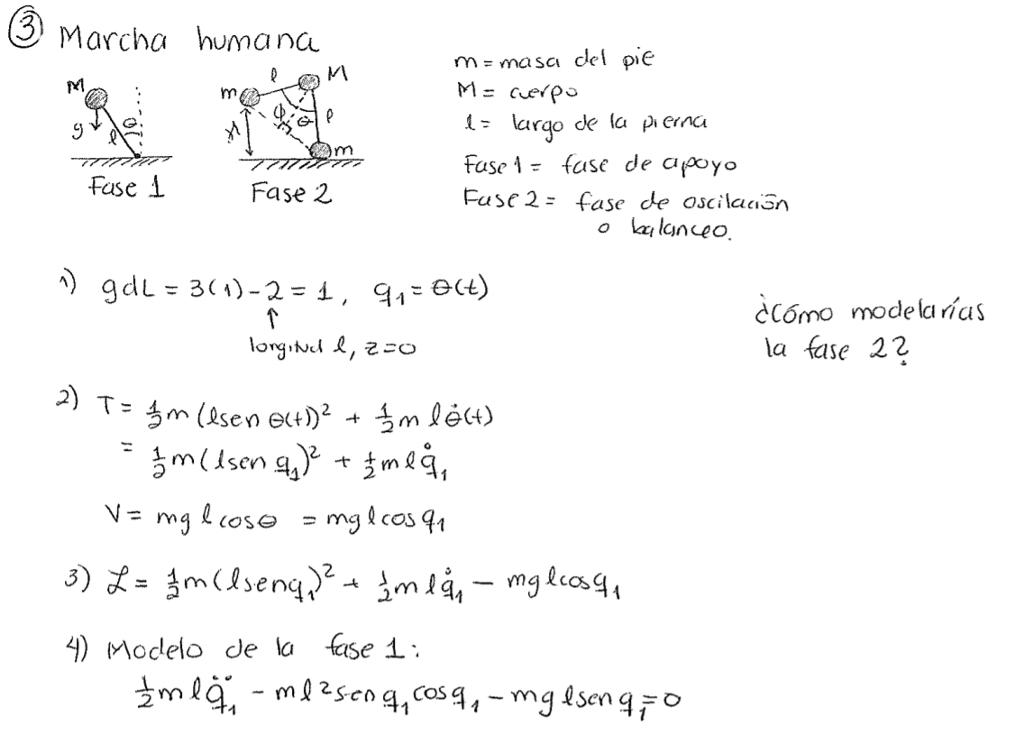 ③ Marcha humana
m = masa del pie
M = cuerpo
l = largo de la pierna
Fase 1 = fase de apoyo
Fase 2 = fase de oscilación
o balanceo.
M
g
l
θ
Fase 1
m
l
M
ϕ
θ
l
m
Fase 2
1) gdL = 3(1) - 2 = 1, q₁ = θ(t)
↑
longitud l, z=0
¿Cómo modelarías
la fase 2?
2) T = ½m(lsen θ(t))² + ½m lθ̇(t)
= ½m(lsen q₁)² + ½mlq̇₁
V = mg lcosθ = mglcosq₁
3) ℒ = ½m(lsenq₁)² + ½mlq̇₁ - mglcosq₁
4) Modelo de la fase 1:
½mlq̈₁ - ml²senq₁cosq₁ - mglsenq₁=0